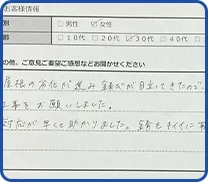 お客様情報
別 □男性 ☑女性
□10代 □20代 ☑30代 □40代
の他、ご意見ご要望ご感想などお聞かせください
屋根の劣化が進み 錆びが目立ってきたので、
工事をお願いしました。
対応が早くて助かりました。錆もキレイに